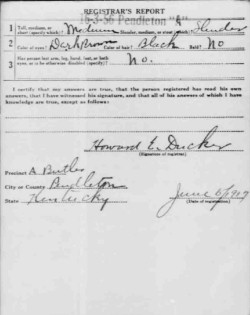 REGISTRAR'S REPORT
16-3-36 Pendleton "A"
1 Tall, medium, or short (specify which)? Medium Slender, medium, or stout (which)? Slender
2 Color of eyes? Dark Brown Color of hair? Black Bald? No
3 Has person lost arm, leg, hand, foot, or both eyes, or is he otherwise disabled (specify)? No.
I certify that my answers are true, that the person registered has read his own answers, that I have witnessed his signature, and that all of his answers of which I have knowledge are true, except as follows:
Howard E. Ducker
(Signature of registrar)
Precinct A Butler
City or County Pendleton
State Kentucky
June 5/1917
(Date of registration)